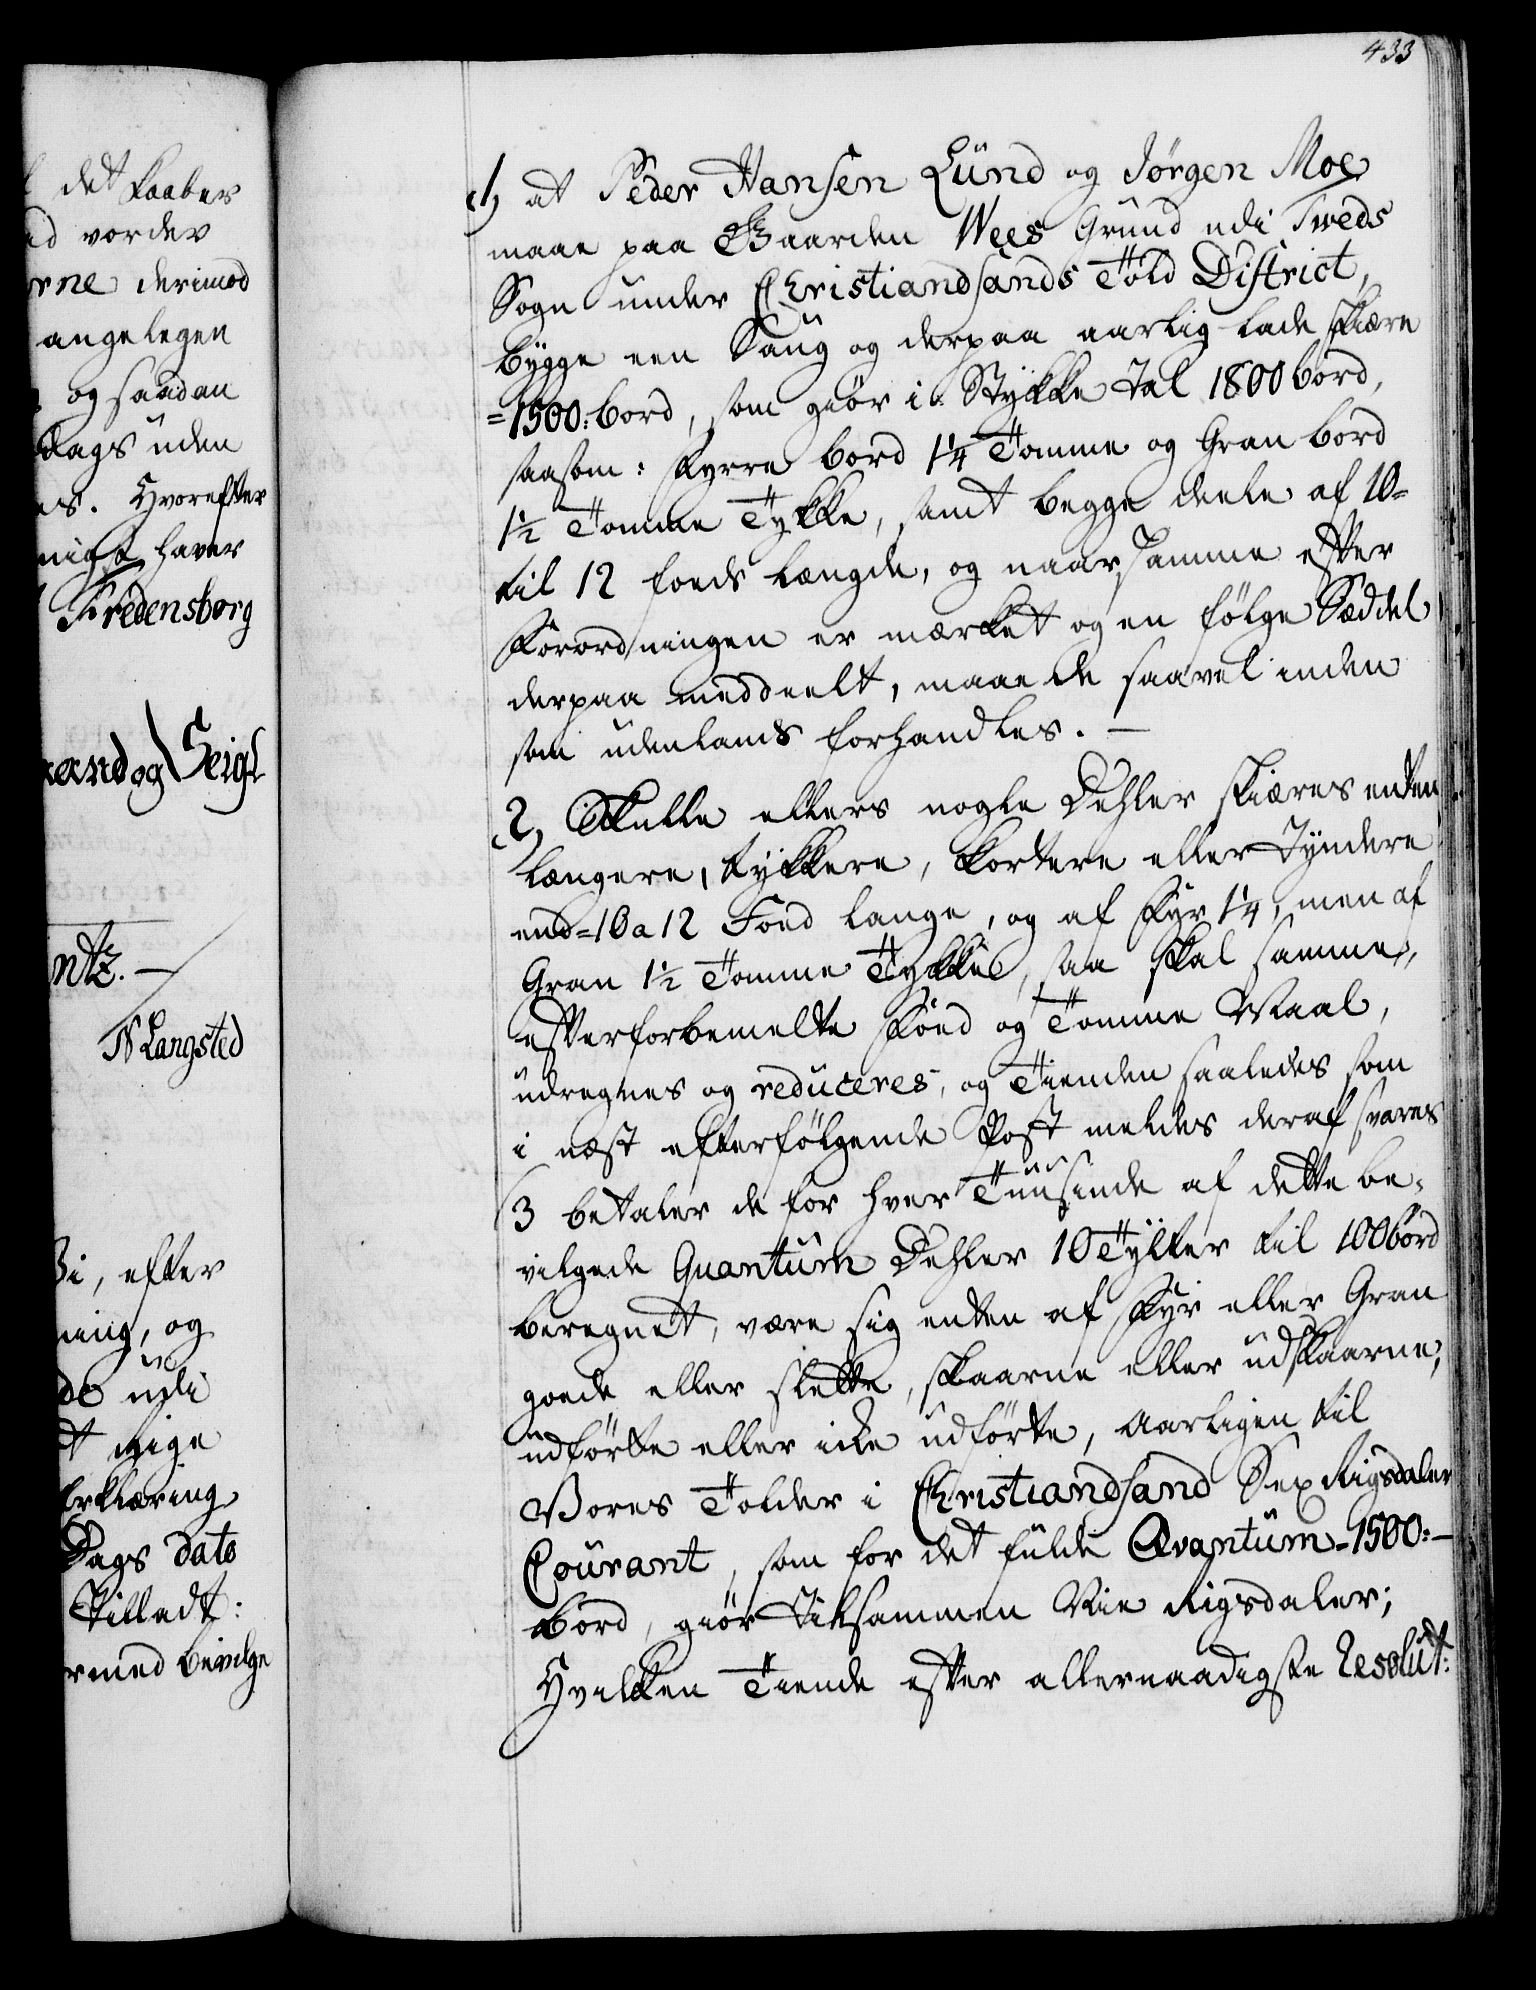 433
det Kaaber
vorder
derimod
angelegen
og saadan
dags uden
Hvorefter
haver
Fredensborg
og Seigl
ntz. —
N Langsted
efter
ning, og
udi
rige
Erklæring
Dags dato
Tilladt:
bevilge
1, at Peder Hansen Lünd og Jørgen Moe
maae paa Gaarden Wees Grund udi Tweds
Sogn under Christiandsands Told District,
bÿgge een Saug og derpaa aarlig lade skiære
=1500: bord, som giør i Stÿkke Tal 1800 bord,
saasom: Fyrre bord 1¼ Tomme og Gran bord
1½ Tomme Tykke, samt begge deele af 10=
til 12 foeds Længde, og naar samme efter
Forordningen er mærket og en følge Sæddel
derpaa meddeelt, maae de saavel inden
som udenlands forhandles. —
2, Skulle ellers nogle Dehler skiæres enten
længere, tykkere, kortere eller Tyndere
end =10 a 12 Foed lange, og af Fyr 1¼, men af
Gran 1½ Tomme Tykke, saa skal samme,
efter forbemelte Foed og Tomme Maal,
udregnes og reduceres, og Tienden saaledes som
i næst efterfølgende Post meldes deraf svares
3 betaler de for hver Tuusinde af dette be-
vilgede Quantum Dehler 10 Tÿlter til 100 bord
beregnet, være sig enten af Fyr eller Gran
goede eller slette, skaarne eller udskaarne,
udførte eller icke udførte, aarligen til
Vores Tolder i Christiandsand Sex Rigsdaler
Courant, som for det fulde Qvantum =1500: —
bord, giør Tilsammen Nie Rigsdaler;
Hvilken Tiende efter allernaadigste Resolut: